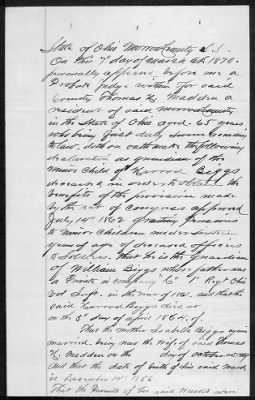 State of Ohio Morrow County S.S.
On this 7th day of March AD 1870
personally appeared before me a
Probate Judge within for said
County Thomas H. Madden a
resident of said Morrow County
in the State of Ohio aged 65 years
who being first duly sworn according
to law, doth on oath make the following
declaration as guardian of the
minor Child of Harrod Biggs
deceased, in order to obtain the
benefits of the provision made
by the act of Congress approved
July 14th 1862 granting Pensions
to minor Children under sixteen
years of age of deceased officers
& Soldiers. That he is the guardian
of William Biggs whose father was
a Private in Company "C" Regt Ohio
Vol in the War of 1861. and that the
said Harrod Biggs died at
on the 5th day of April 1864. of
That the mother Isabella Biggs again
married, being now the wife of said Thomas
H. Madden on the day of October
And that the date of birth of his said Ward
is December 14th 1856
That the Parents of the said Ward were